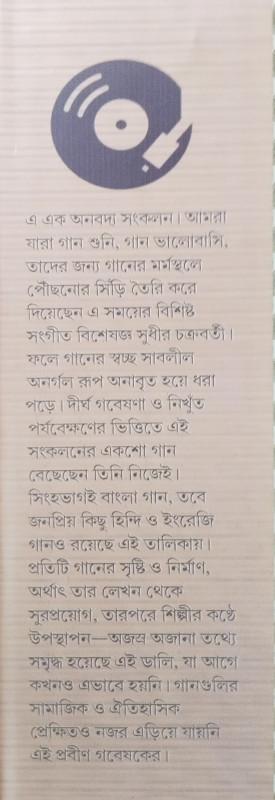 এ এক অনবদ্য সংকলন। আমরা
যারা গান শুনি, গান ভালোবাসি,
তাদের জন্য গানের মর্মস্থলে
পৌঁছনোর সিঁড়ি তৈরি করে
দিয়েছেন এ সময়ের বিশিষ্ট
সংগীত বিশেষজ্ঞ সুধীর চক্রবর্তী।
ফলে গানের স্বচ্ছ সাবলীল
অনর্গল রূপ অনাবৃত হয়ে ধরা
পড়ে। দীর্ঘ গবেষণা ও নিখুঁত
পর্যবেক্ষণের ভিত্তিতে এই
সংকলনের একশো গান
বেছেছেন তিনি নিজেই।
সিংহভাগই বাংলা গান, তবে
জনপ্রিয় কিছু হিন্দি ও ইংরেজি
গানও রয়েছে এই তালিকায়।
প্রতিটি গানের সৃষ্টি ও নির্মাণ,
অর্থাৎ তার লেখন থেকে
সুরপ্রয়োগ, তারপরে শিল্পীর কণ্ঠে
উপস্থাপন—অজস্র অজানা তথ্যে
সমৃদ্ধ হয়েছে এই ডালি, যা আগে
কখনও এভাবে হয়নি। গানগুলির
সামাজিক ও ঐতিহাসিক
প্রেক্ষিতও নজর এড়িয়ে যায়নি
এই প্রবীণ গবেষকের।